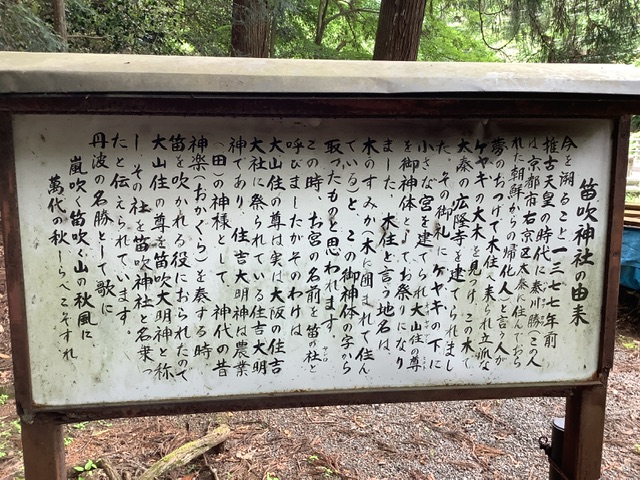 笛吹神社の由来
今を溯ること一三七七年前
推古天皇の時代に秦川勝(この人
は京都市右京区太秦に住んでおら
れた朝鮮からの帰化人)と言う人が
夢のおつげで木住へ来られ立派な
ケヤキの大木を見つけ、この木で
太秦の広隆寺を建てられまし
た。その御礼にケヤキの下に
小さな宮を建てられ大山住の尊
を御神体としてお祭りになり
ました。木住と言う地名は、
木のすみか(木に囲まれて住ん
でいる)と、この御神体の字から
取ったものと思われます。
この時、お宮の名前を笛の社と
呼びましたがそのわけは、
大山住の尊は実は大阪の住吉
大社に祭られている住吉大明
神であり、住吉大明神は農業
(田)の神様として、神代の昔
神楽(おかぐら)を奏する時、
笛を吹かれる役におられたので
大山住の尊を笛吹大明神と称
し、その社を笛吹神社と名乗っ
たと伝えられています。
丹波の名勝として歌に
嵐吹く笛吹く山の秋風に
萬代の秋しらべこそすれ